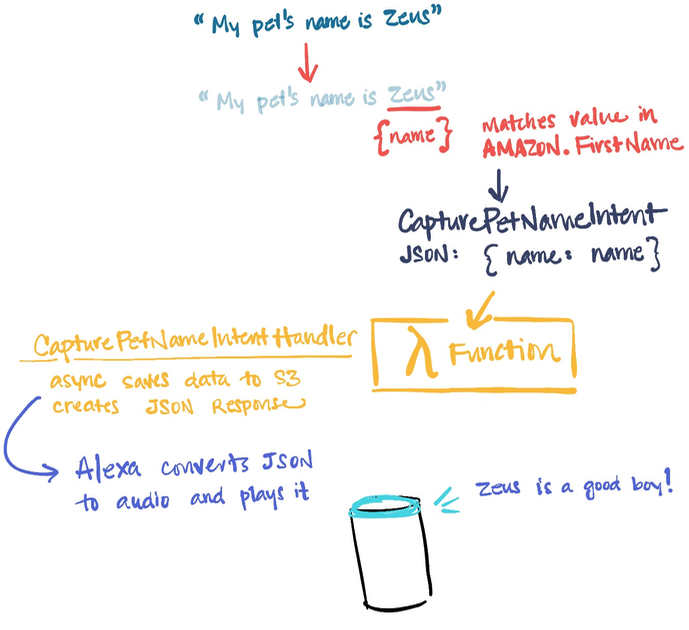 "My pet's name is Zeus"
"My pet's name is Zeus"
{name}
matches value in
AMAZON.FirstName
CapturePetNameIntent
JSON: { name: name}
CapturePetNameIntentHandler
async saves data to S3
creates JSON Response
λ Function
Alexa converts JSON
to audio and plays it
Zeus is a good boy!